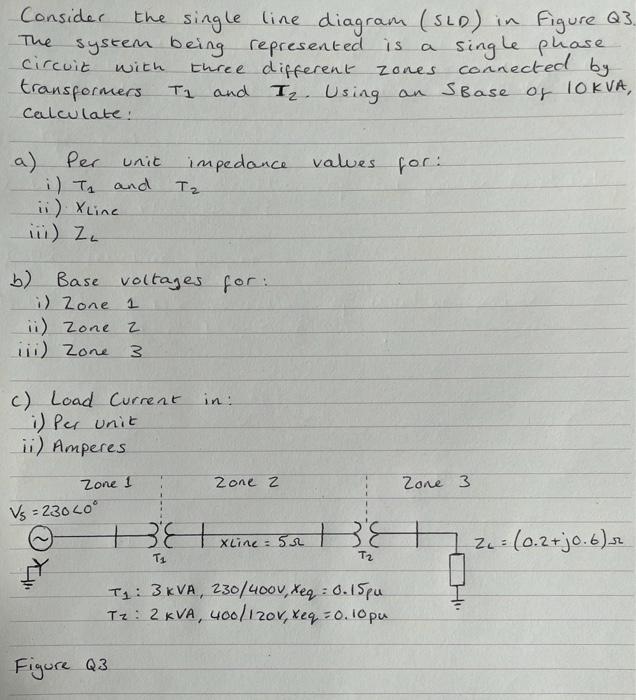 Consider the single line diagram (SLD) in Figure Q3.
The system being represented is a single phase
circuit with three different zones connected by
transformers T1 and T2. Using an SBase of 10KVA,
calculate:
a) Per unit impedance values for:
i) T1 and T2
ii) XLine
iii) ZL
b) Base voltages for:
i) Zone 1
ii) Zone 2
iii) Zone 3
c) Load Current in:
i) Per unit
ii) Amperes
Zone 1 Zone 2 Zone 3
Vs = 230<0°
XLine = 5Ω ZL = (0.2+j0.6)Ω
T1 T2
T1: 3KVA, 230/400V, Xeq = 0.15pu
T2: 2KVA, 400/120V, Xeq = 0.10pu
Figure Q3